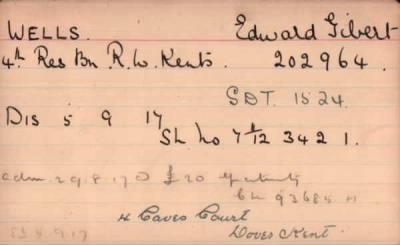 WELLS. Edward Gibert
4th Res Bn R.W. Kents. 202964.
SDT. 1524.
Dis 5 9 17
SL No 7/12 3421.
adm. 29.8.17 £20
Ch 93685 H
4 Caves Court
Dover Kent.